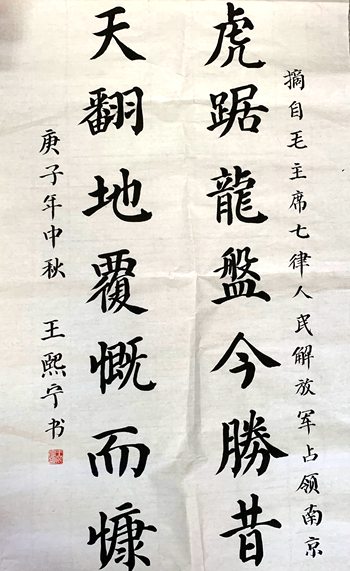 摘自毛主席七律人民解放军占领南京
虎踞龍盤今勝昔
天翻地覆慨而慷
庚子年中秋 王熙宁书